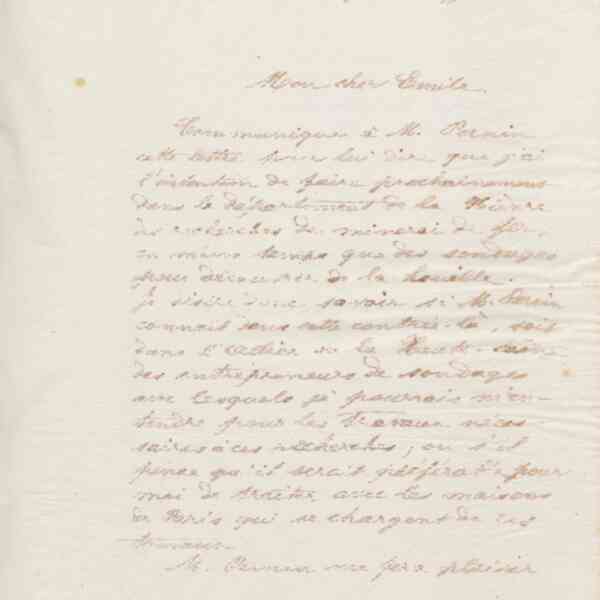 Mon cher Emile.
Communiquez à M. Pernin
cette lettre pour lui dire que j'ai
l'intention de faire prochainement
dans le département de la Nièvre
des recherches de minerai de fer,
en même temps que des sondages
pour découvrir de la houille.
Je désire donc savoir si M. Pernin
connait dans cette contrée-là, soit
dans l' de la Haute-
des entrepreneurs de sondages
avec lesquels je pourrais m'en-
tendre pour les travaux néces-
saires à ces recherches, ou s'il
pense qu'il serait préférable pour
moi de traiter avec les maisons
de Paris qui se chargent de ces
travaux.
M. Pernin me fera plaisir